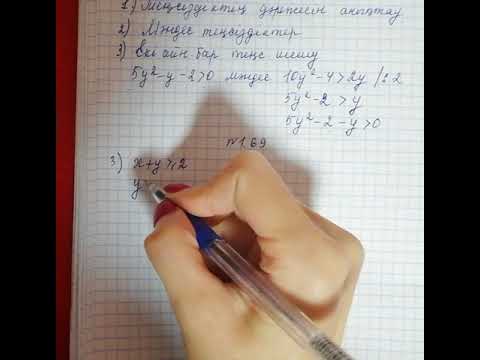 1) Теңсіздіктің дәрежесін анықтау
2) Мәндес теңсіздіктер
3) Екі айн бар теңс шешу
5y²-y-2>0 мәндес 10y²-4>2y /:2
5y²-2>y
5y²-2-y>0
№169
3) x+y⩾2
y